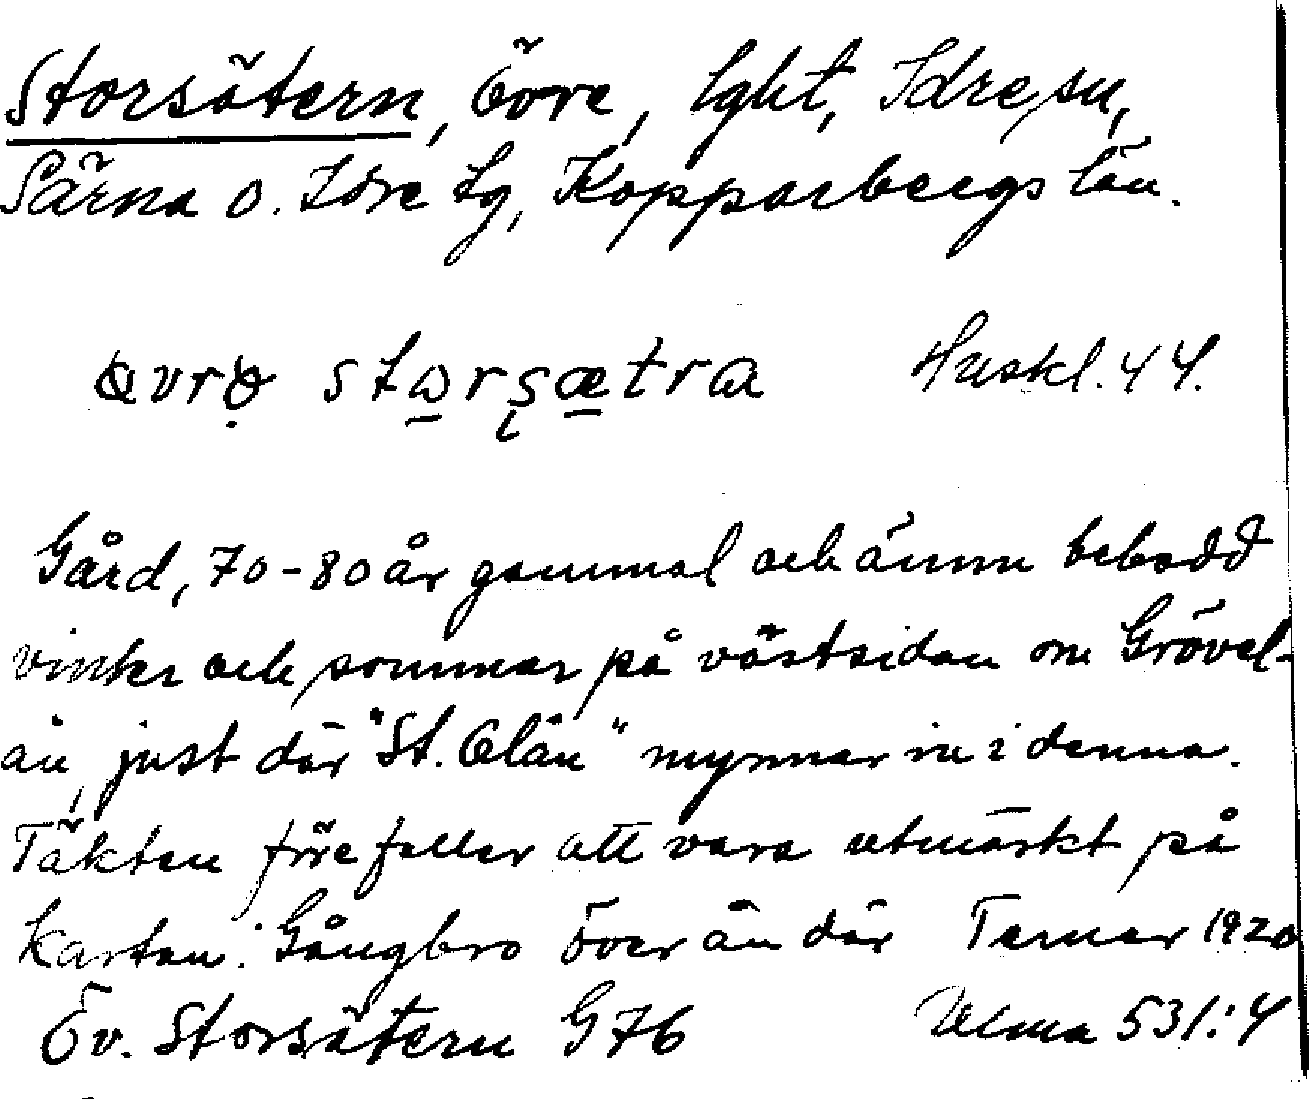 Storsätern, Övre, lght, Idre sn,
Särna o. Idre tg, Kopparbergs län.
storsætra Huskl. 44.
Gård, 70-80 år gammal och ännu bebodd
vinter och sommar på västsidan om Grövel-
ån, just där "St. Olån" mynnar in i denna.
Täkten förefaller att vara utmärkt på
kartan. Gångbro över ån där Terner 1920
Öv. Storsätern G76 Ulma 531:4